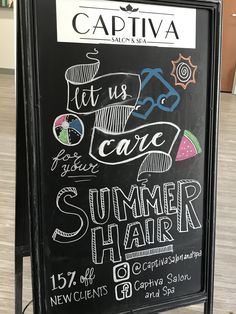 CAPTIVA
SALON & SPA
let us
care
for
your
SUMMER
HAIR
@captivasalonandspa
15% off
NEW CLIENTS
Captiva Salon
and Spa